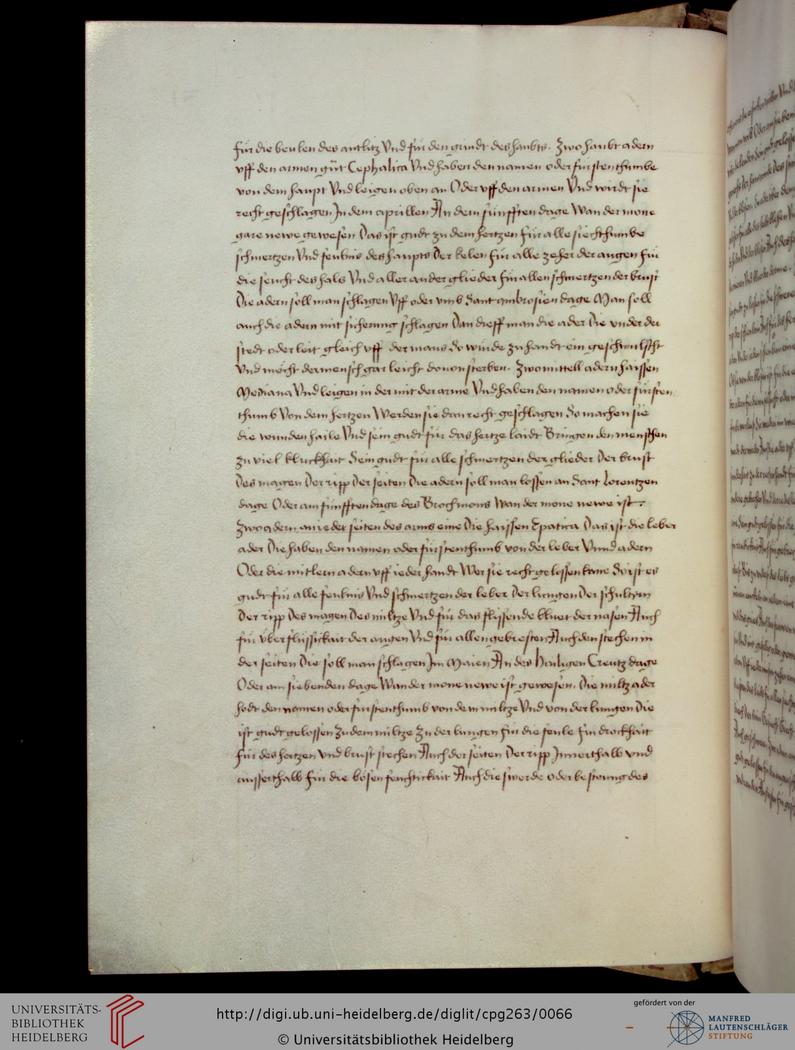 für die beulen des antlitz Vnd für den grindt des haubts. Zwo haubt adern
vff den armen gůt Cephalica Vnd haben den namen oder fürstenthumbe
von dem haupt Vnd leigen oben an Oder vff den armen Vnd wirdt sie
recht geschlagen In dem aprillen An dem fünfften dage Wan der mone
gare newe gewesen Das ist gudt zu dem hertzen für alle siechthumbe
schmertzen Vnd feulnis des haupts Der kelen für alle zeher der augen für
die seucht des hals Vnd aller ander glieder für allen schmertzen der brust
Die adern soll man schlagen Vff oder vmb Sant ambrosien dage Man soll
auch die adern mit sicherung schlagen Dan drefft man die ader Die vnder der
stedt oder leit gleich vff der maus So wurde zu handt ein geschwulscht
Vnd möcht der mensch gar leicht douon sterben. Zwo mittell adern haissen
Mediana Vnd leigen in der mit der arme Vnd haben den namen oder fürsten
thumb Von dem hertzen Werden sie dran recht geschlagen So machen sie
die wunden haile Vnd sein gudt für das hertze laidt Bringen den menschen
zu viel kluckhait Sein gudt für alle schmertzen der glieder Der brust
Des magen Der ripp Der seiten Die adern soll man lossen an Sant Lorentzen
dage Oder am fünfften dage des Brochmons Wan der mone newe ist.
Zwo adern an ieder seiten des arms eine Die haissen Epatica Das ist die leber
ader Die haben den namen oder fürstenthumb von der leber Vnnd adern
Oder die mitlern adern vff ieder handt Wer sie recht gelossen kane So ist es
gudt für alle feulnis Vnd schmertzen der leber Der lungen Der schultern
Der ripp Des magen Des miltze Vnd für das flissende bluet der nasen Auch
für überflüssickait der augen Vnd für allen gebresten Auch den stechen in
der seiten Die soll man schlagen Im Maien An des hailigen Creutz dage
Oder am siebenden dage Wan der mone newe ist gewesen. Die miltz ader
hodt den namen oder fürstenthumb von dem miltze Vnd von der lungen Die
ist gudt gelossen Zu dem miltze Zu der lungen für die feule für drockhait
für des hertzen vnd brust stechen Auch der seiten Der ripp Innerthalb vnd
ausserthalb für die bösen feuchtickait Auch die swerde oder des
UNIVERSITÄTS-
BIBLIOTHEK
HEIDELBERG
http://digi.ub.uni-heidelberg.de/diglit/cpg263/0066
© Universitätsbibliothek Heidelberg
gefördert von der
MANFRED
LAUTENSCHLÄGER
STIFTUNG